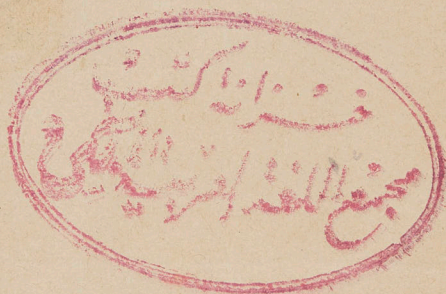 خزانة كتب
مجمع اللغة العربية الملكي